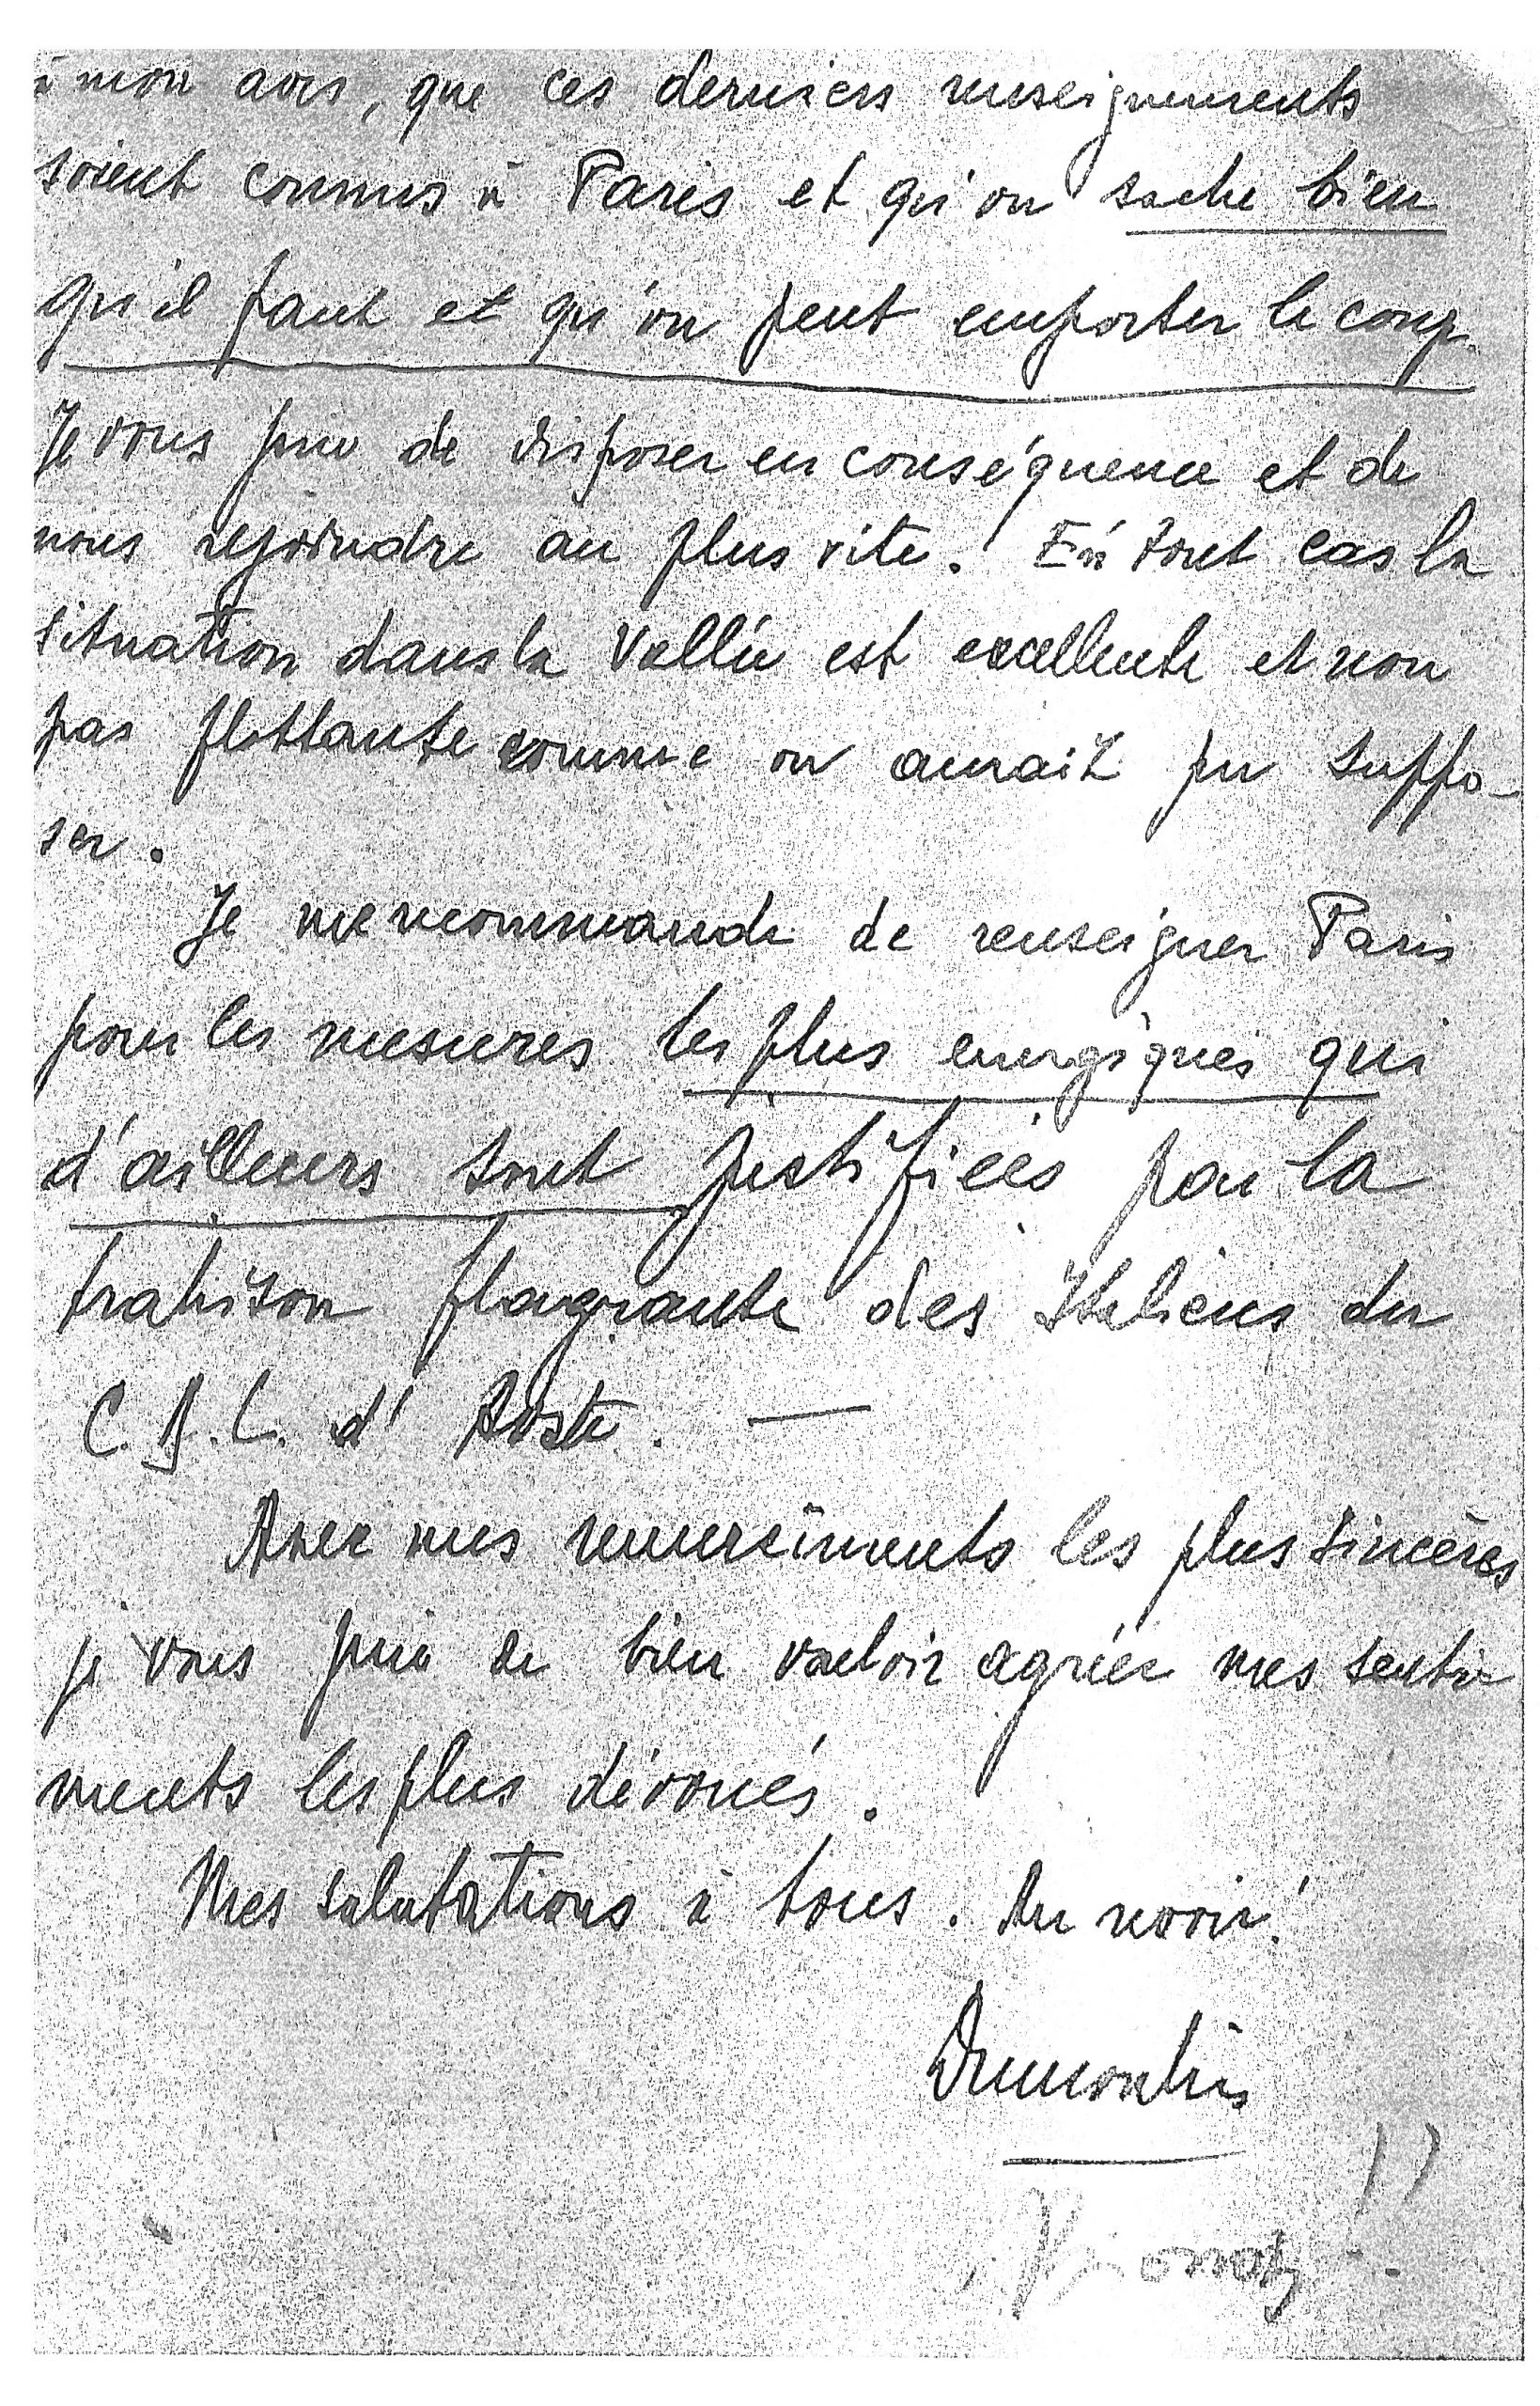 à mon avis, que ces derniers renseignements
soient connus à Paris et qu'on sache bien
qu'il faut et qu'on peut emporter le coup.
Je vous prie de disposer en conséquence et de
nous rejoindre au plus vite. En tout cas la
situation dans la Vallée est excellente et non
pas flottante comme on aurait pu suppo-
ser.
Je me recommande de renseigner Paris
pour les mesures les plus energiques qui
d'ailleurs sont justifiées par la
trahison flagrante des Italiens du
C.D.L. d'Aoste. —
Avec mes remercîments les plus sincères
je vous prie de bien vouloir agréer mes senti
ments les plus dévoués.
Mes salutations à tous. Au revoir!